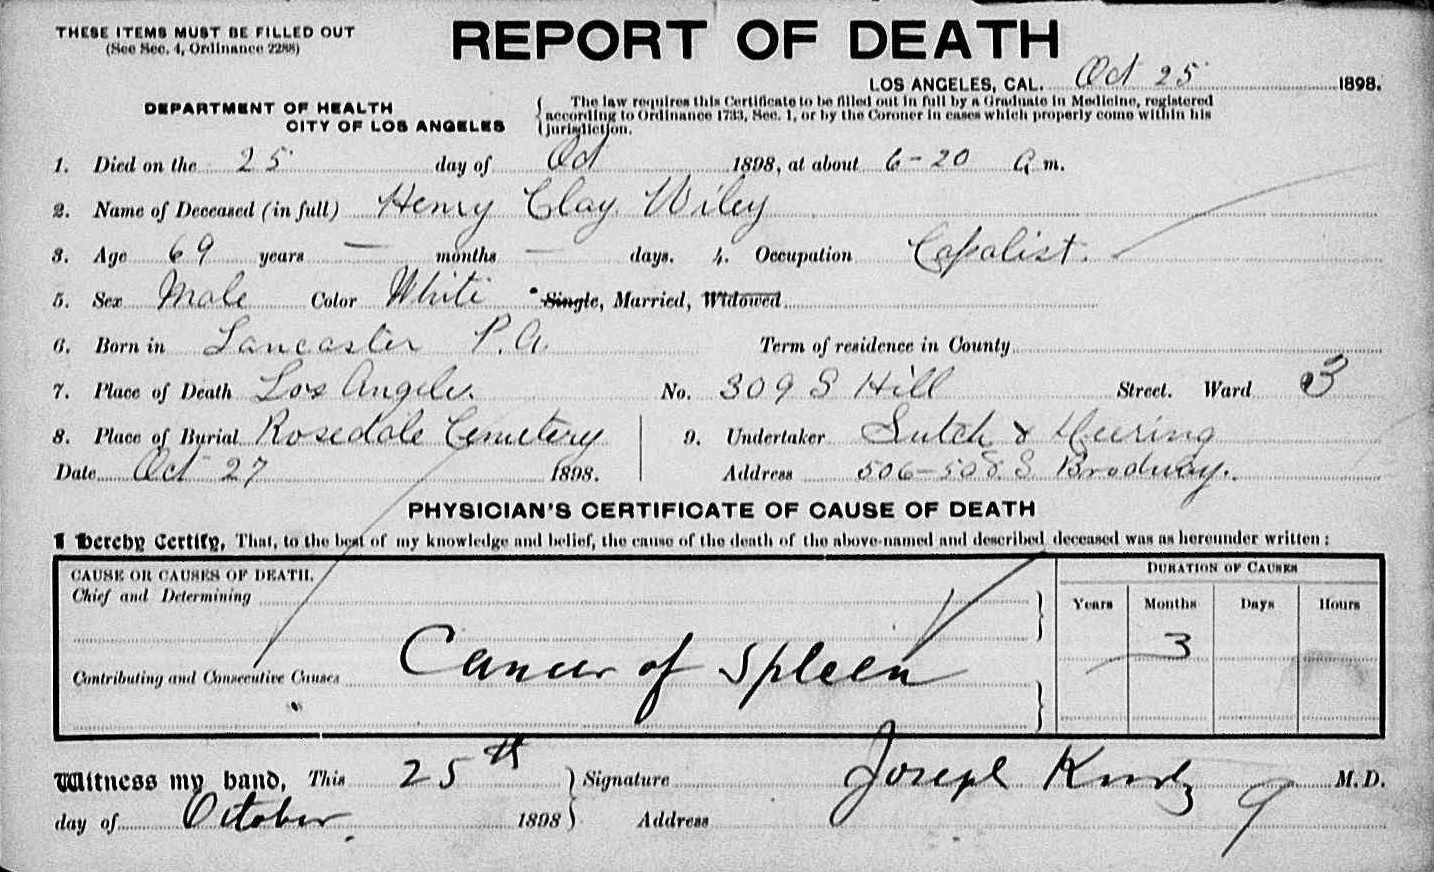 THESE ITEMS MUST BE FILLED OUT
(See Sec. 4, Ordinance 2288)
REPORT OF DEATH
LOS ANGELES, CAL. Oct 25 1898.
DEPARTMENT OF HEALTH
CITY OF LOS ANGELES
The law requires this Certificate to be filled out in full by a Graduate in Medicine, registered
according to Ordinance 1733, Sec. 1, or by the Coroner in cases which properly come within his
jurisdiction.
1. Died on the 25 day of Oct 1898, at about 6-20 a m.
2. Name of Deceased (in full) Henry Clay Wiley
3. Age 69 years — months — days. 4. Occupation Capalist.
5. Sex Male Color White Single, Married, Widowed
6. Born in Lancaster P.A Term of residence in County
7. Place of Death Los Angeles. No. 309 S Hill Street. Ward 3
8. Place of Burial Rosedale Cemetery 9. Undertaker Sutch & Deering
Date Oct 27 1898. Address 506-508 S. Brodway.
PHYSICIAN'S CERTIFICATE OF CAUSE OF DEATH
I hereby Certify, That, to the best of my knowledge and belief, the cause of the death of the above-named and described deceased was as hereunder written:
CAUSE OR CAUSES OF DEATH. DURATION OF CAUSES
Chief and Determining Years Months Days Hours
3
Contributing and Consecutive Causes Cancer of Spleen
Witness my hand, This 25th Signature Joseph Kurtz M.D.
day of October 1898 Address